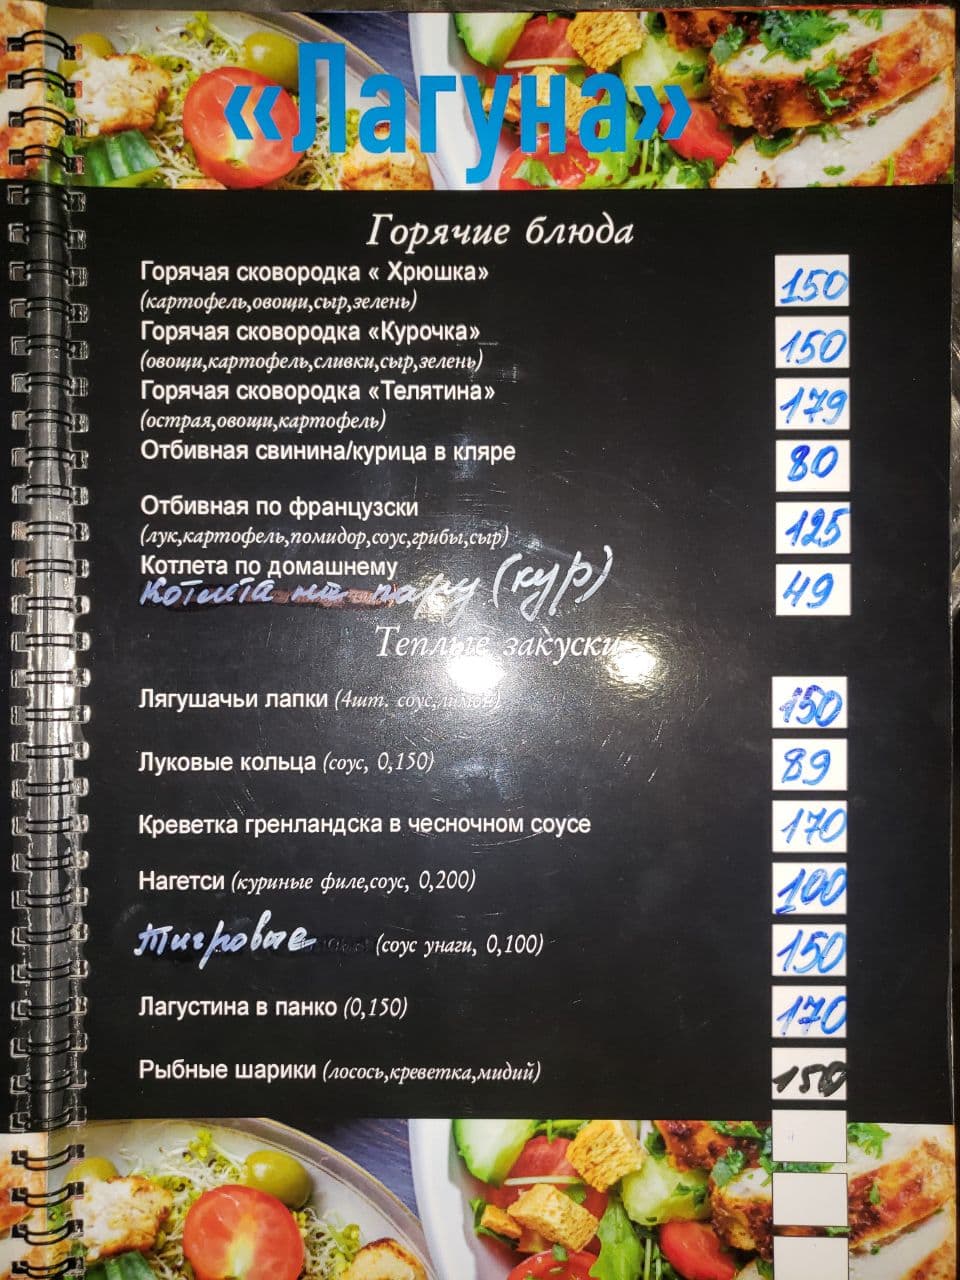 «Лагуна»
Горячие блюда
Горячая сковородка « Хрюшка» 150
(картофель,овощи,сыр,зелень)
Горячая сковородка «Курочка» 150
(овощи,картофель,сливки,сыр,зелень)
Горячая сковородка «Телятина» 179
(острая,овощи,картофель)
Отбивная свинина/курица в кляре 80
Отбивная по французски 125
(лук,картофель,помидор,соус,грибы,сыр)
Котлета по домашнему 49
Котлета на пару (кур)
Теплые закуски
Лягушачьи лапки (4шт. соус,лимон) 150
Луковые кольца (соус, 0,150) 89
Креветка гренландска в чесночном соусе 170
Нагетси (куриные филе,соус, 0,200) 100
Тигровые (соус унаги, 0,100) 150
Лагустина в панко (0,150) 170
Рыбные шарики (лосось,креветка,мидий) 150